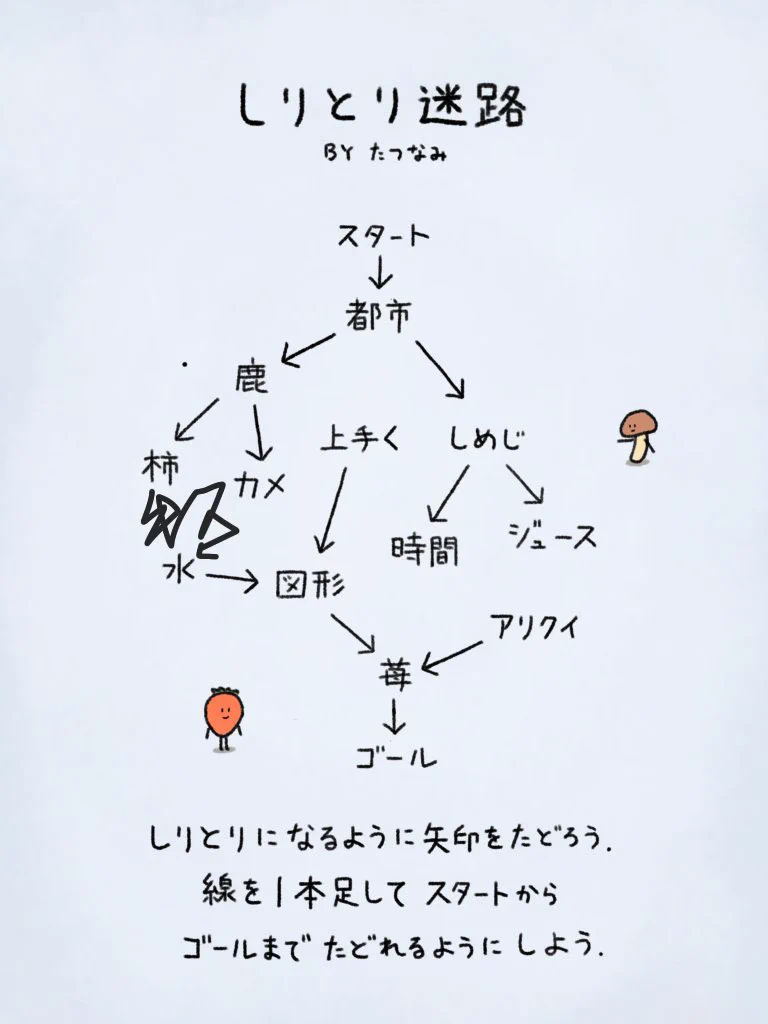 しりとり迷路
BY たつなみ
スタート
都市
鹿
上手く しめじ
柿
カメ
時間 ジュース
水
図形
アリクイ
苺
ゴール
しりとりになるように矢印をたどろう.
線を1本足して スタートから
ゴールまで たどれるように しよう.